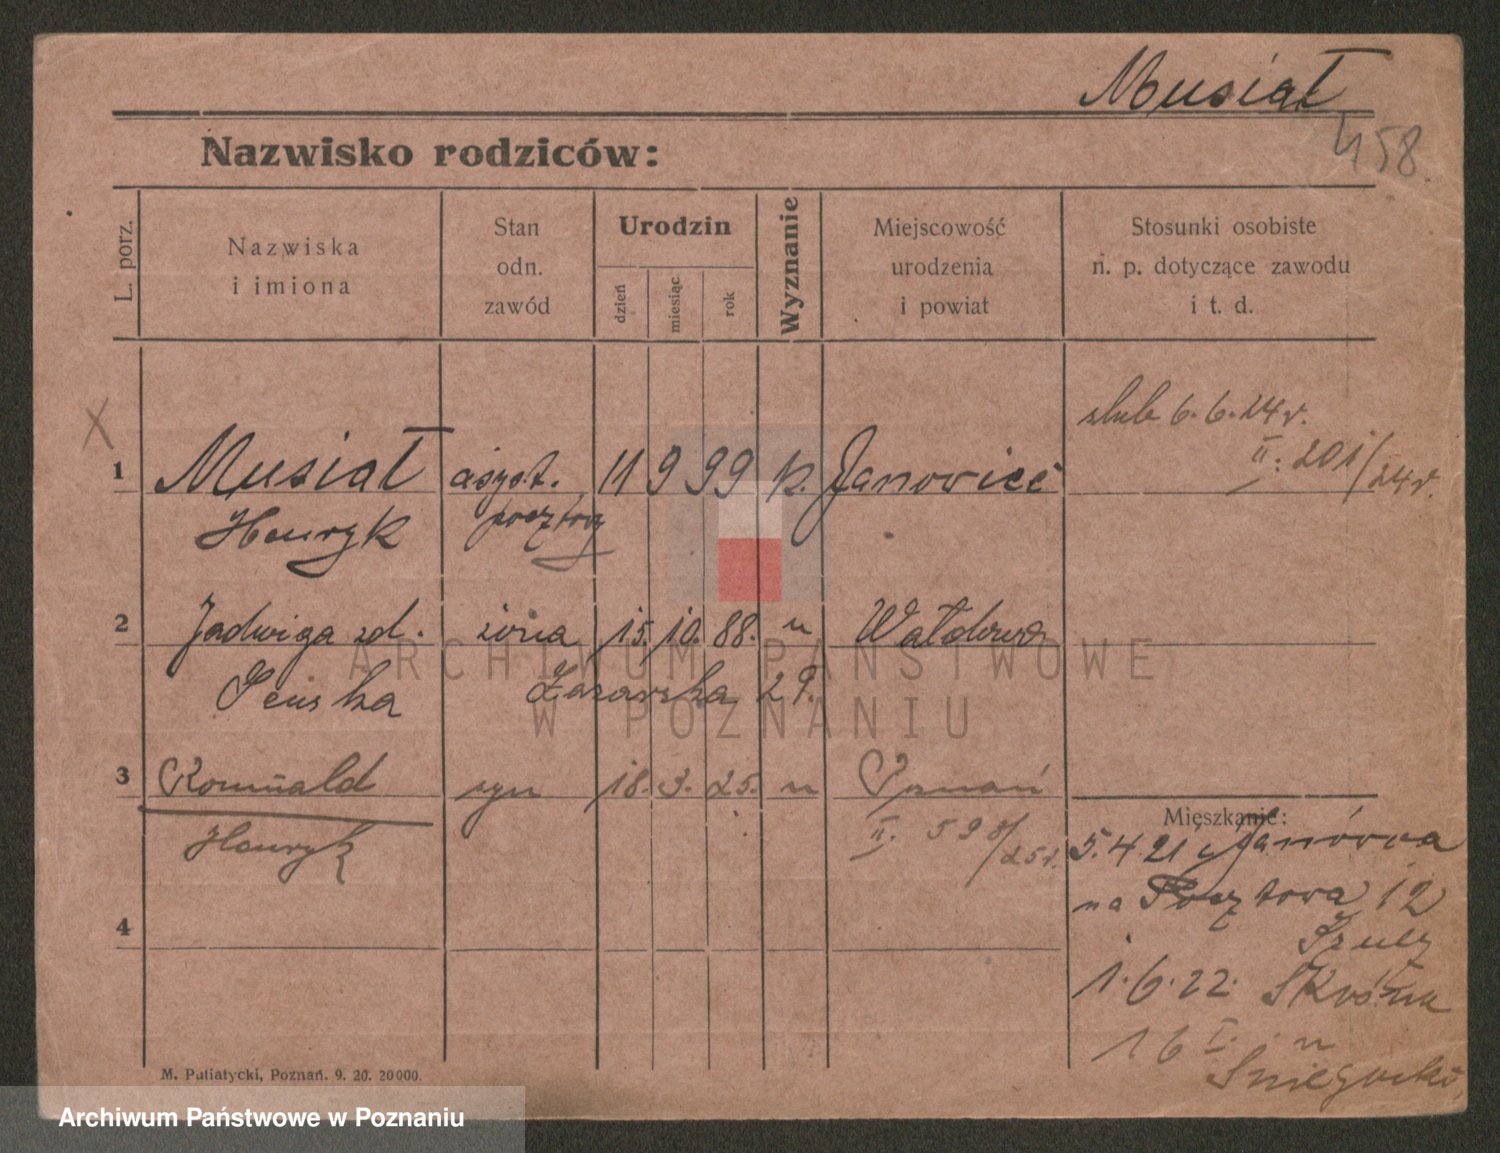 Musiał
458.
Nazwisko rodziców:
L. porz.
Nazwiska
i imiona
Stan
odn.
zawód
Urodzin
dzień
miesiąc
rok
Wyznanie
Miejscowość
urodzenia
i powiat
Stosunki osobiste
n. p. dotyczące zawodu
i t. d.
ślub 6.6.24 r.
II. 201/24 r.
X
1 Musiał asyst. 11 9 99 k. Janowiec
Henryk poczтowy
2 Jadwiga zd. żona 15. 10. 88. u Wałdowo
Łazarska 29.
3 Romuald syn 18. 3. 25. u Poznań
Henryk II. 598/25 r.
Mieszkanie:
5.4 21 Janówca
na Pocztowa 12
Szulz
4
1.6.22.
16 I. u
Śniegocki
M. Putiatycki, Poznań. 9. 20. 20000.
ARCHIWUM PAŃSTWOWE
W POZNANIU
Archiwum Państwowe w Poznaniu